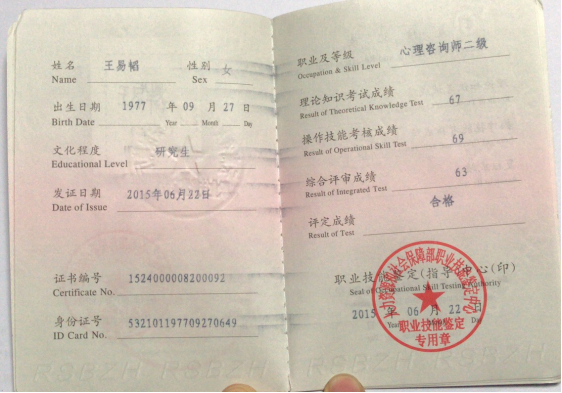 姓名 王易韬
Name
性别 女
Sex
出生日期 1977 年 09 月 27 日
Birth Date Year Month Day
文化程度 研究生
Educational Level
发证日期 2015年06月22日
Date of Issue
证书编号 1524000008200092
Certificate No.
身份证号 532101197709270649
ID Card No.
职业及等级 心理咨询师二级
Occupation & Skill Level
理论知识考试成绩 67
Result of Theoretical Knowledge Test
操作技能考核成绩 69
Result of Operational Skill Test
综合评审成绩 63
Result of Integrated Test
合格
评定成绩
Result of Test
职业技能鉴定(指导)中心(印)
Seal of Occupational Skill Testing Authority
2015 年 06 月 22 日
Year Day
人力资源和社会保障部职业技能鉴定中心
职业技能鉴定
专用章